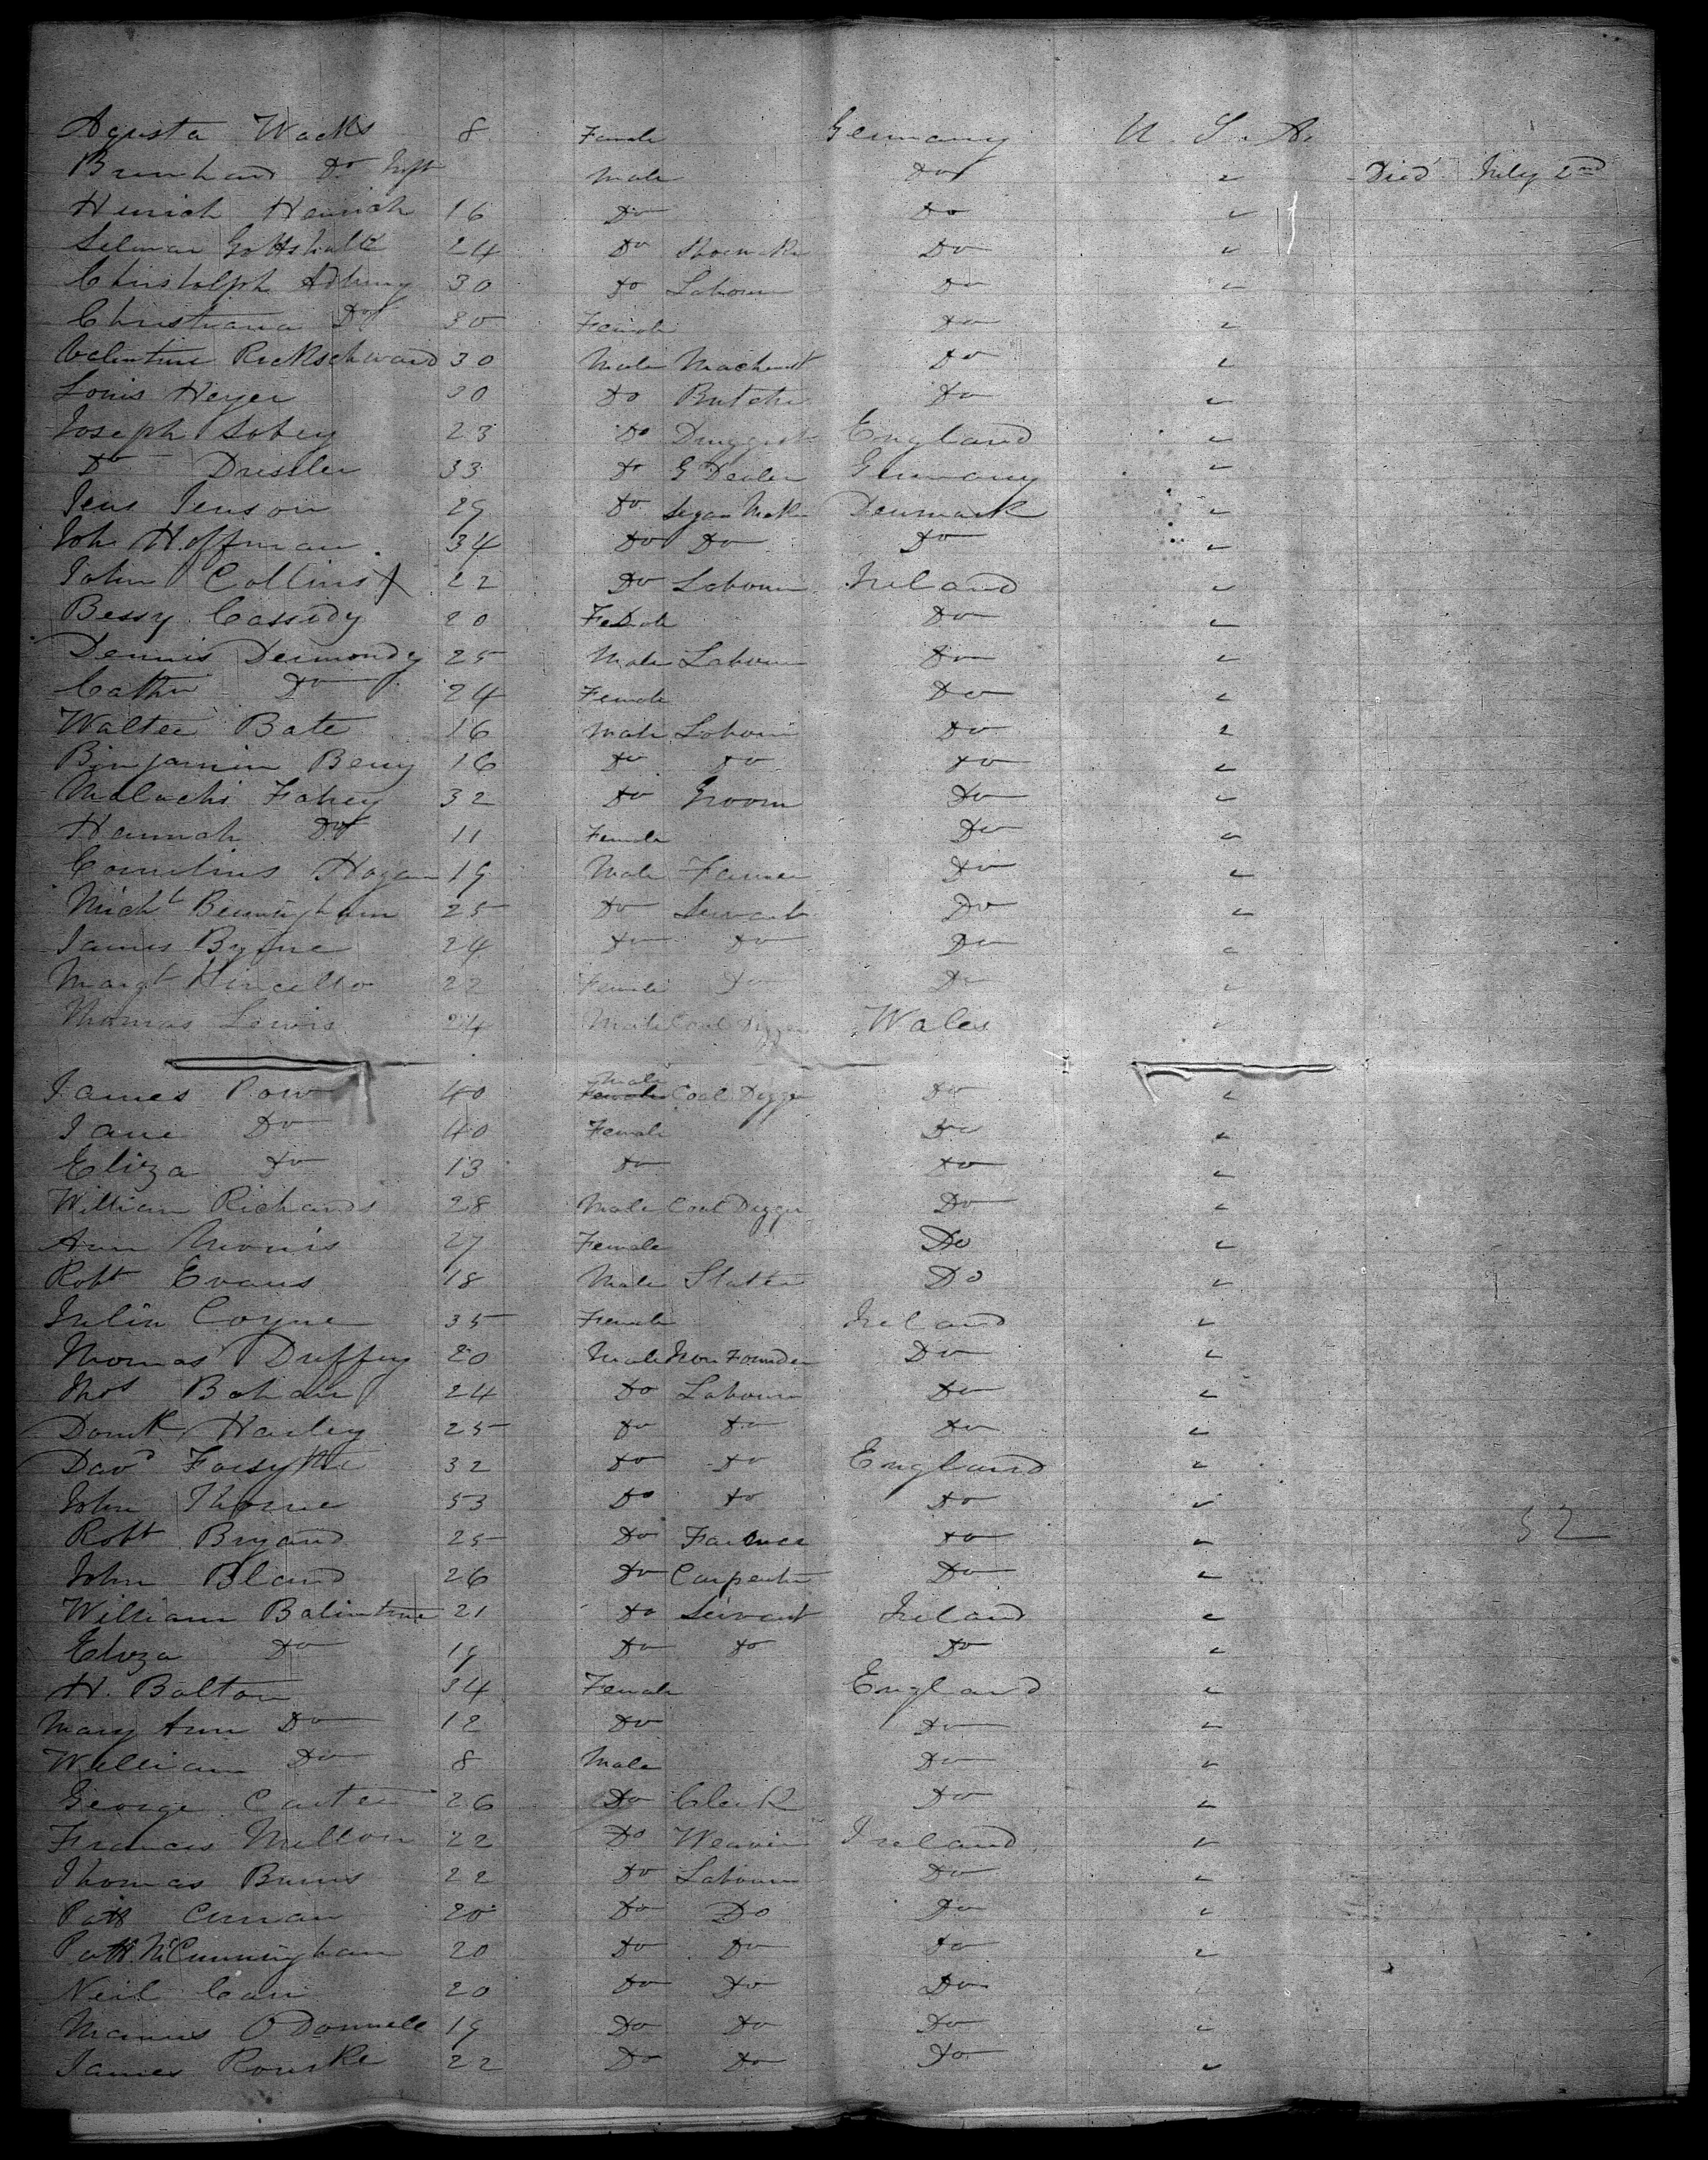 Agusta Wacks 8 Female Germany U. S. A.
Bernhard Do Inft Male Do " Died July 2nd
Henrich Henrich 16 Do Do "
Selman Gottshalk 24 Do Shoemaker Do "
Christolph 30 Do Labourer Do "
Christiana Do 30 Female Do "
Valentine Rickschward 30 Male Machinist Do "
Louis Heyer 30 Do Butcher Do "
Joseph Sobey 23 Do Druggist England "
Do Dressler 33 Do G Dealer Germany "
Jens Jenson 29 Do Segar Maker Denmark "
Joh Hoffman 34 Do Do Do "
John Collins X 22 Do Labourer Ireland "
Bessy Cassidy 20 Female Do "
Dennis Desmondy 25 Male Labourer Do "
Cathn Do 24 Female Do "
Walter Bate 16 Male Labourer Do "
Binjamin Berry 16 Do Do Do "
Malachi Fahey 32 Do Groom Do "
Hannah Do 11 Female Do "
Cornelius Hogan 19 Male Farmer Do "
Michl Bermingham 25 Do Servant Do "
James Byrne 24 Do Do Do "
Margt 22 Female Do Do "
Thomas Lewis 24 Male Coal Digger Wales "
James Pow 40 Male Coal Digger Do "
Jane Do 40 Female Do "
Eliza Do 13 Do Do "
William Richards 28 Male Coal Digger Do "
Ann Morris 27 Female Do "
Robt Evans 18 Male Slater Do "
Julia Coyne 35 Female Ireland "
Thomas Duffey 20 Male Iron Founder Do "
Thos Bohan 24 Do Labourer Do "
Domk Harley 25 Do Do Do "
Davd Forsythe 32 Do Do England "
John Thorne 53 Do Do Do "
Robt Bryand 25 Do Farmer Do " 52
John Bland 26 Do Carpenter Do "
William Balintine 21 Do Servant Ireland "
Eliza Do 19 Do Do Do "
H. Bolton 34 Female England "
Mary Ann Do 12 Do Do "
William Do 8 Male Do "
George Carter 26 Do Clerk Do "
Frances Mellon 22 Do Weaver Ireland "
Thomas Burns 22 Do Labourer Do "
Patk 20 Do Do Do "
Patk McCunningham 20 Do Do Do "
Neil Carr 20 Do Do Do
Manus O'Donnell 19 Do Do Do "
James Rourke 22 Do Do Do "